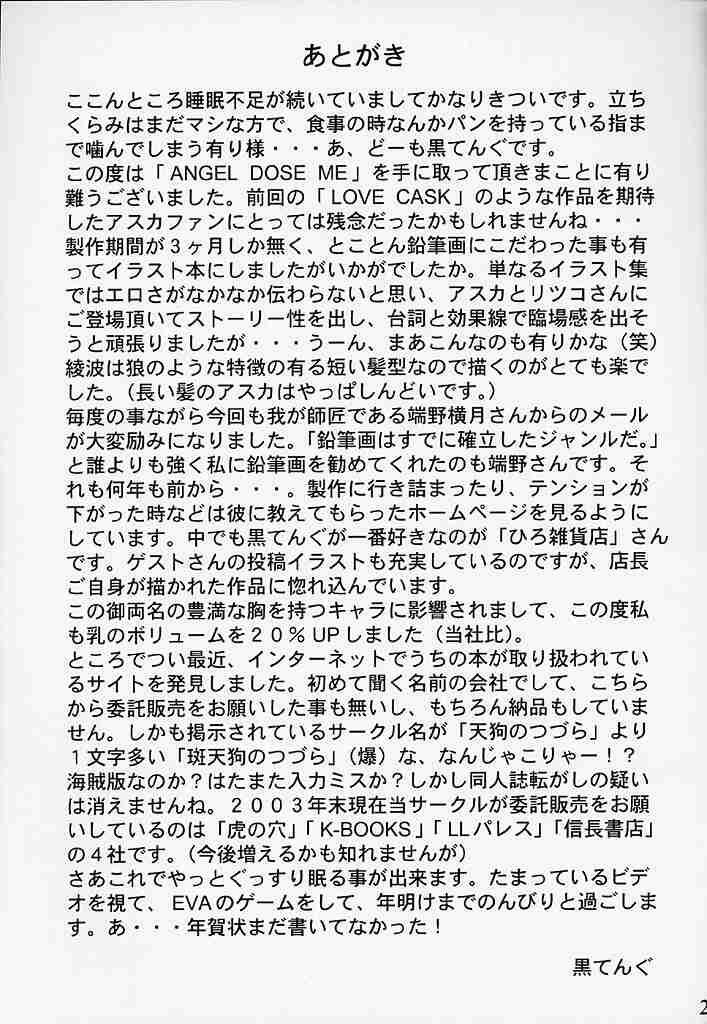 あとがき
ここんところ睡眠不足が続いていましてかなりきついです。立ち
くらみはまだマシな方で、食事の時なんかパンを持っている指ま
で噛んでしまう有り様・・・あ、どーも黒てんぐです。
この度は「ANGEL DOSE ME」を手に取って頂きまことに有り
難うございました。前回の「LOVE CASK」のような作品を期待
したアスカファンにとっては残念だったかもしれませんね・・・
製作期間が３ヶ月しか無く、とことん鉛筆画にこだわった事も有
ってイラスト本にしましたがいかがでしたか。単なるイラスト集
ではエロさがなかなか伝わらないと思い、アスカとリツコさんに
ご登場頂いてストーリー性を出し、台詞と効果線で臨場感を出そ
うと頑張りましたが・・・うーん、まあこんなのも有りかな（笑）
綾波は狼のような特徴の有る短い髪型なので描くのがとても楽で
した。（長い髪のアスカはやっぱしんどいです。）
毎度の事ながら今回も我が師匠である端野横月さんからのメール
が大変励みになりました。「鉛筆画はすでに確立したジャンルだ。」
と誰よりも強く私に鉛筆画を勧めてくれたのも端野さんです。そ
れも何年も前から・・・。製作に行き詰まったり、テンションが
下がった時などは彼に教えてもらったホームページを見るように
しています。中でも黒てんぐが一番好きなのが「ひろ雑貨店」さん
です。ゲストさんの投稿イラストも充実しているのですが、店長
ご自身が描かれた作品に惚れ込んでいます。
この御両名の豊満な胸を持つキャラに影響されまして、この度私
も乳のボリュームを２０％UPしました（当社比）。
ところでつい最近、インターネットでうちの本が取り扱われてい
るサイトを発見しました。初めて聞く名前の会社でして、こちら
から委託販売をお願いした事も無いし、もちろん納品もしていま
せん。しかも掲示されているサークル名が「天狗のつづら」より
１文字多い「斑天狗のつづら」（爆）な、なんじゃこりゃー！？
海賊版なのか？はたまた入力ミスか？しかし同人誌転がしの疑い
は消えませんね。２００３年末現在当サークルが委託販売をお願
いしているのは「虎の穴」「K-BOOKS」「LLパレス」「信長書店」
の４社です。（今後増えるかも知れませんが）
さあこれでやっとぐっすり眠る事が出来ます。たまっているビデ
オを視て、EVAのゲームをして、年明けまでのんびりと過ごしま
す。あ・・・年賀状まだ書いてなかった！
黒てんぐ
2